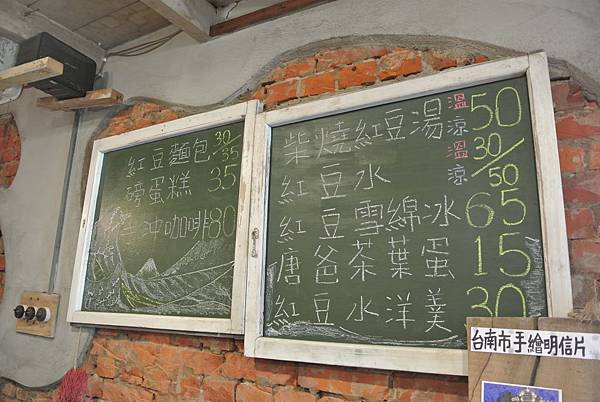 紅豆麵包 30/35
磅蛋糕 35
手沖咖啡 80
柴燒紅豆湯 溫涼 50
紅豆水 溫涼 30/50
紅豆雪綿冰 65
唐爸茶葉蛋 15
紅豆水洋羹 30
台南市手繪明信片